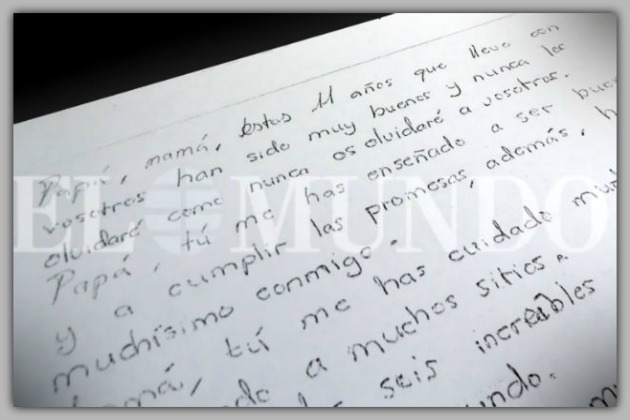 Papá, mamá, éstos 11 años que llevo con
vosotros han sido muy buenos y nunca los
olvidaré como nunca os olvidaré a vosotros.
Papá, tú me has enseñado a ser
y a cumplir las promesas, además,
muchísimo conmigo.
tú me has cuidado
a muchos sitios.
seis increíbles
EL MUNDO